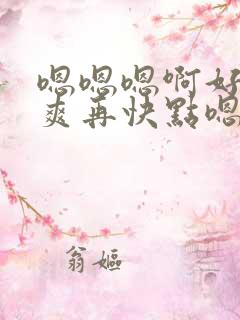 嗯嗯嗯啊好
爽再快點嗯
翁嫗